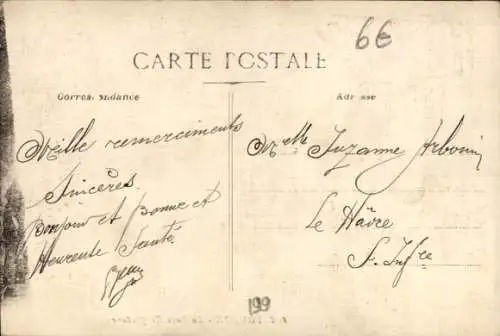 66
CARTE POSTALE
Correspondance
Adresse
Mille remerciments
Sincères.
Bonjour et Bonne et
Heureuse Santé.
Melle Suzanne Arbouin
Le Hâvre
S. Infre
199